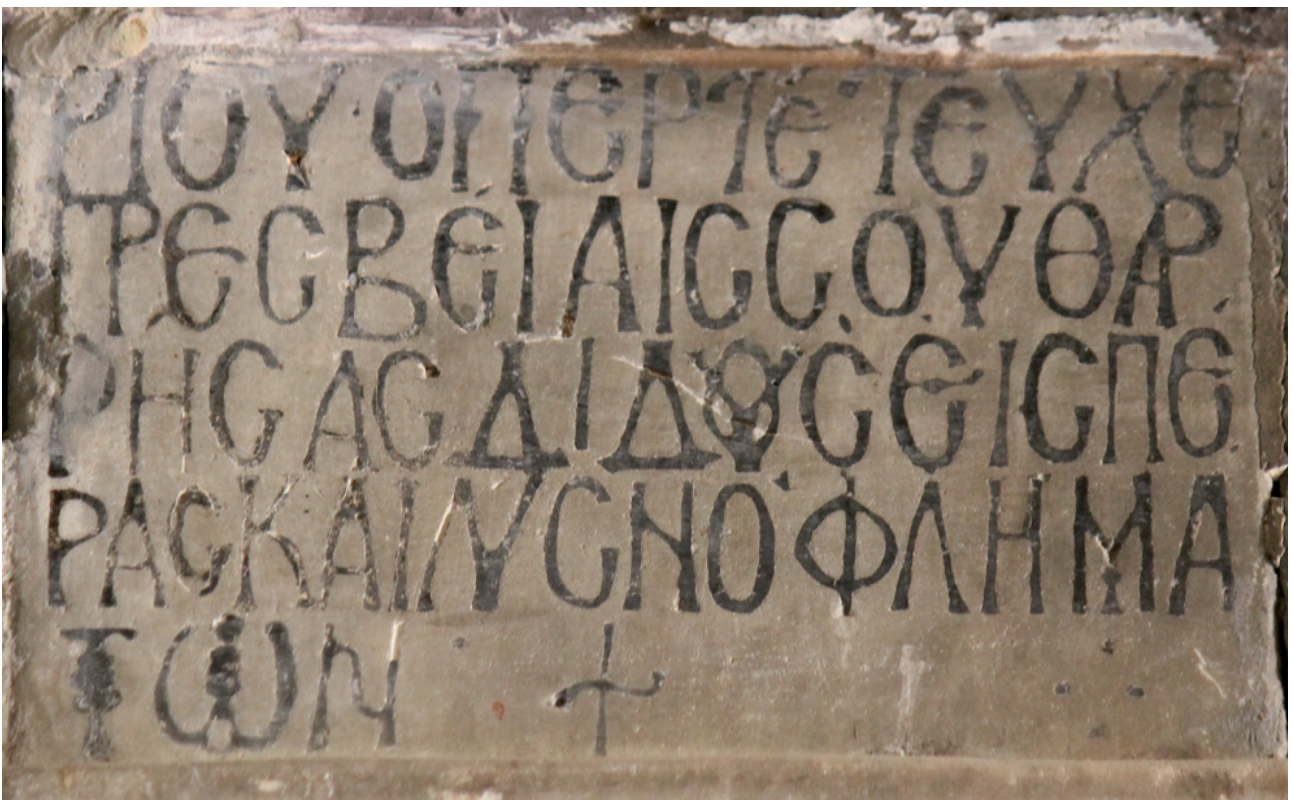 ΡΙΟΥΟΠΕΡΤΕΤΕΥΧΕ
ΠΡΕϹΒΕΙΑΙϹϹΟΥΘΑΡ
ΡΗϹΑϹΔΙΔȢϹΕΙϹΠΕ
ΡΑϹΚΑΙΛΥϹΝΟΦΛΗΜΑ
ΤΩΝ +